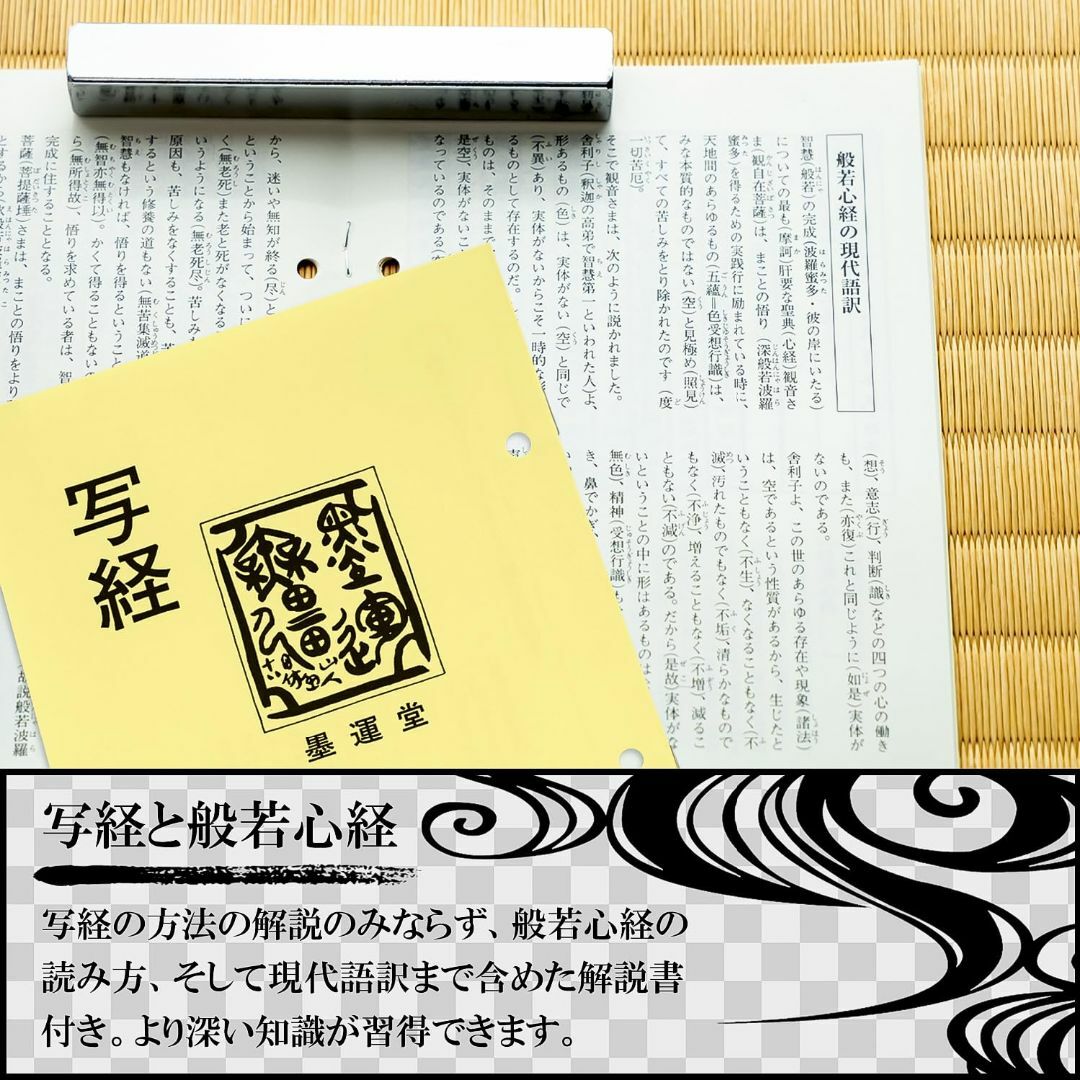 般若心経の現代語訳
智慧(般若)の完成(波羅蜜多・彼の岸にいたる)
についての最も(摩訶)肝要な聖典(心経)観音さ
ま(観自在菩薩)は、まことの悟り(深般若波羅
蜜多)を得るための実践行に励まれている時に、
天地間のあらゆるもの(五蘊=色受想行識)は、
みな本質的なものではない(空)と見極め(照見)
て、すべての苦しみをとり除かれたのです(度
一切苦厄)。
そこで観音さまは、次のように説かれました。
舎利子(釈迦の高弟で智慧第一といわれた人)よ、
形あるもの(色)は、実体がない(空)と同じで
(不異)あり、実体がないからこそ一時的な
るものとして存在するのだ。
ものは、そのまま
是空)実体がないこ
なっているのである(
(想)、意志(行)、判断(識)などの四つの心の働き
も、また(亦復)これと同じように(如是)実体が
ないのである。
舎利子よ、この世のあらゆる存在や現象(諸法)
は、空であるという性質があるから、生じたと
いうこともなく(不生)、なくなることもなく(不
滅)、汚れたものでもなく(不垢)、清らかなもので
もなく(不浄)、増えることもなく(不増)、減るこ
ともない(不減)のである。だから(是故)実体がな
いということの中に形はあるものは
無色)、精神(受想行識)も
き、鼻でかぎ
から、迷いや無知が終る(尽)と
ということから始まって、ついに
く(無老死)また老と死がなくなる
いうようになる(無老死尽)。苦しみ
原因も、苦しみをなくすることも、苦
するという修養の道もない(無苦集滅道
智慧もなければ、悟りを得るということ
ら(無智亦無得以)。かくて得ることもないの
(無所得故)、悟りを求めている者は、智
菩薩(菩提薩埵)さまは、まことの悟りをより
完成に住することとなる。
故説般若波羅
写経
墨運堂
写経と般若心経
写経の方法の解説のみならず、般若心経の
読み方、そして現代語訳まで含めた解説書
付き。より深い知識が習得できます。